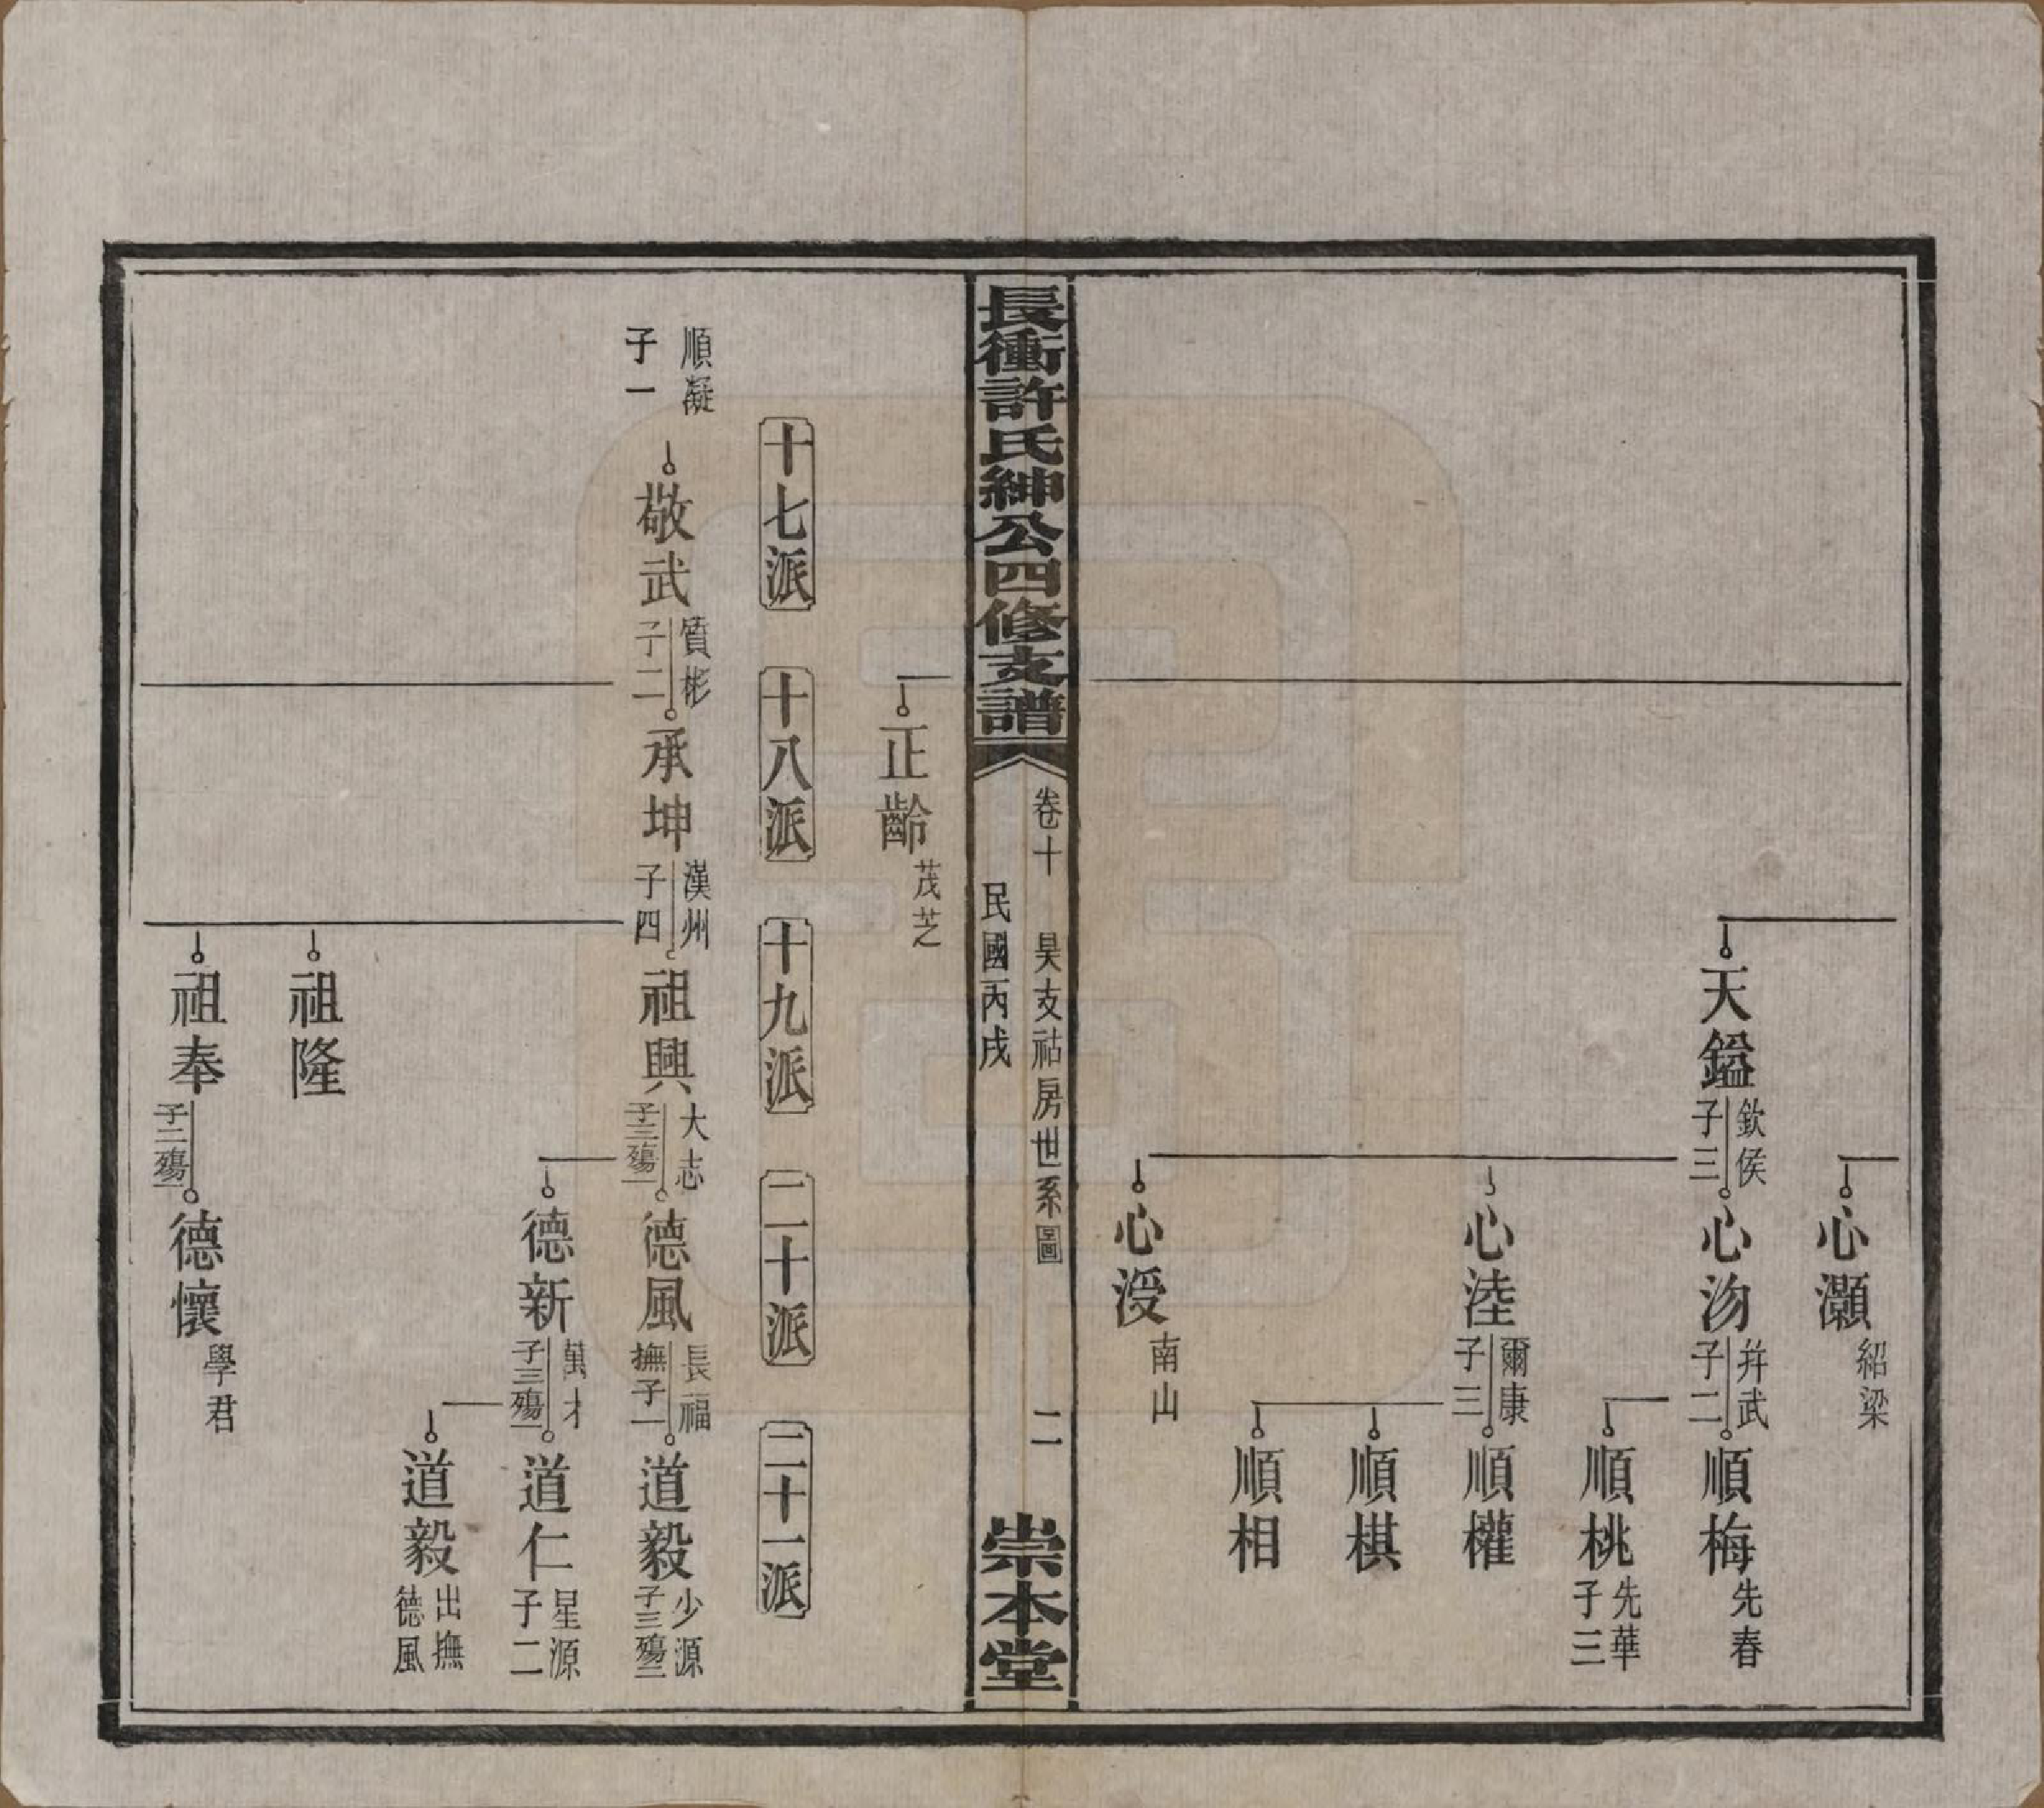 心灝
紹梁
天鎰
欽侯
子三
心沕
并武
子二
順梅
先春
順桃
先華
子三
心淕
爾康
子三
順權
順棋
順相
心涭
南山
長衝許氏紳公四修支譜
卷十 昊支祜房世系圖 二
民國丙戌
崇本堂
正齡
茂芝
十七派
十八派
十九派
二十派
二十一派
順凝
子一
敬武
質彬
子二
承坤
漢州
子四
祖興
大志
子三殤一
德風
長福
撫子一
道毅
少源
子三殤二
德新
萬才
子三殤一
道仁
星源
子二
道毅
出撫
德風
祖隆
祖奉
子二殤一
德懷
學君